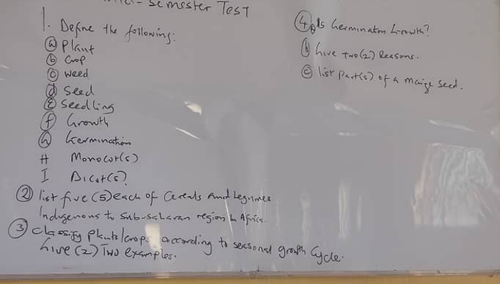 semester TEST
1. Define the following:
a Plant
b Crop
c weed
d Seed
e Seedling
f Growth
G Germination
H Monocot(s)
I Dicot(s)?
2 list five (5) each of Cereals And legumes
Indigenous to Sub-saharan region in Africa.
3 Classify Plants/crops according to seasonal growth Cycle.
Give (2) Two examples.
4 a Is Germination Growth?
b Give two (2) Reasons.
c list Part(s) of a maize seed.